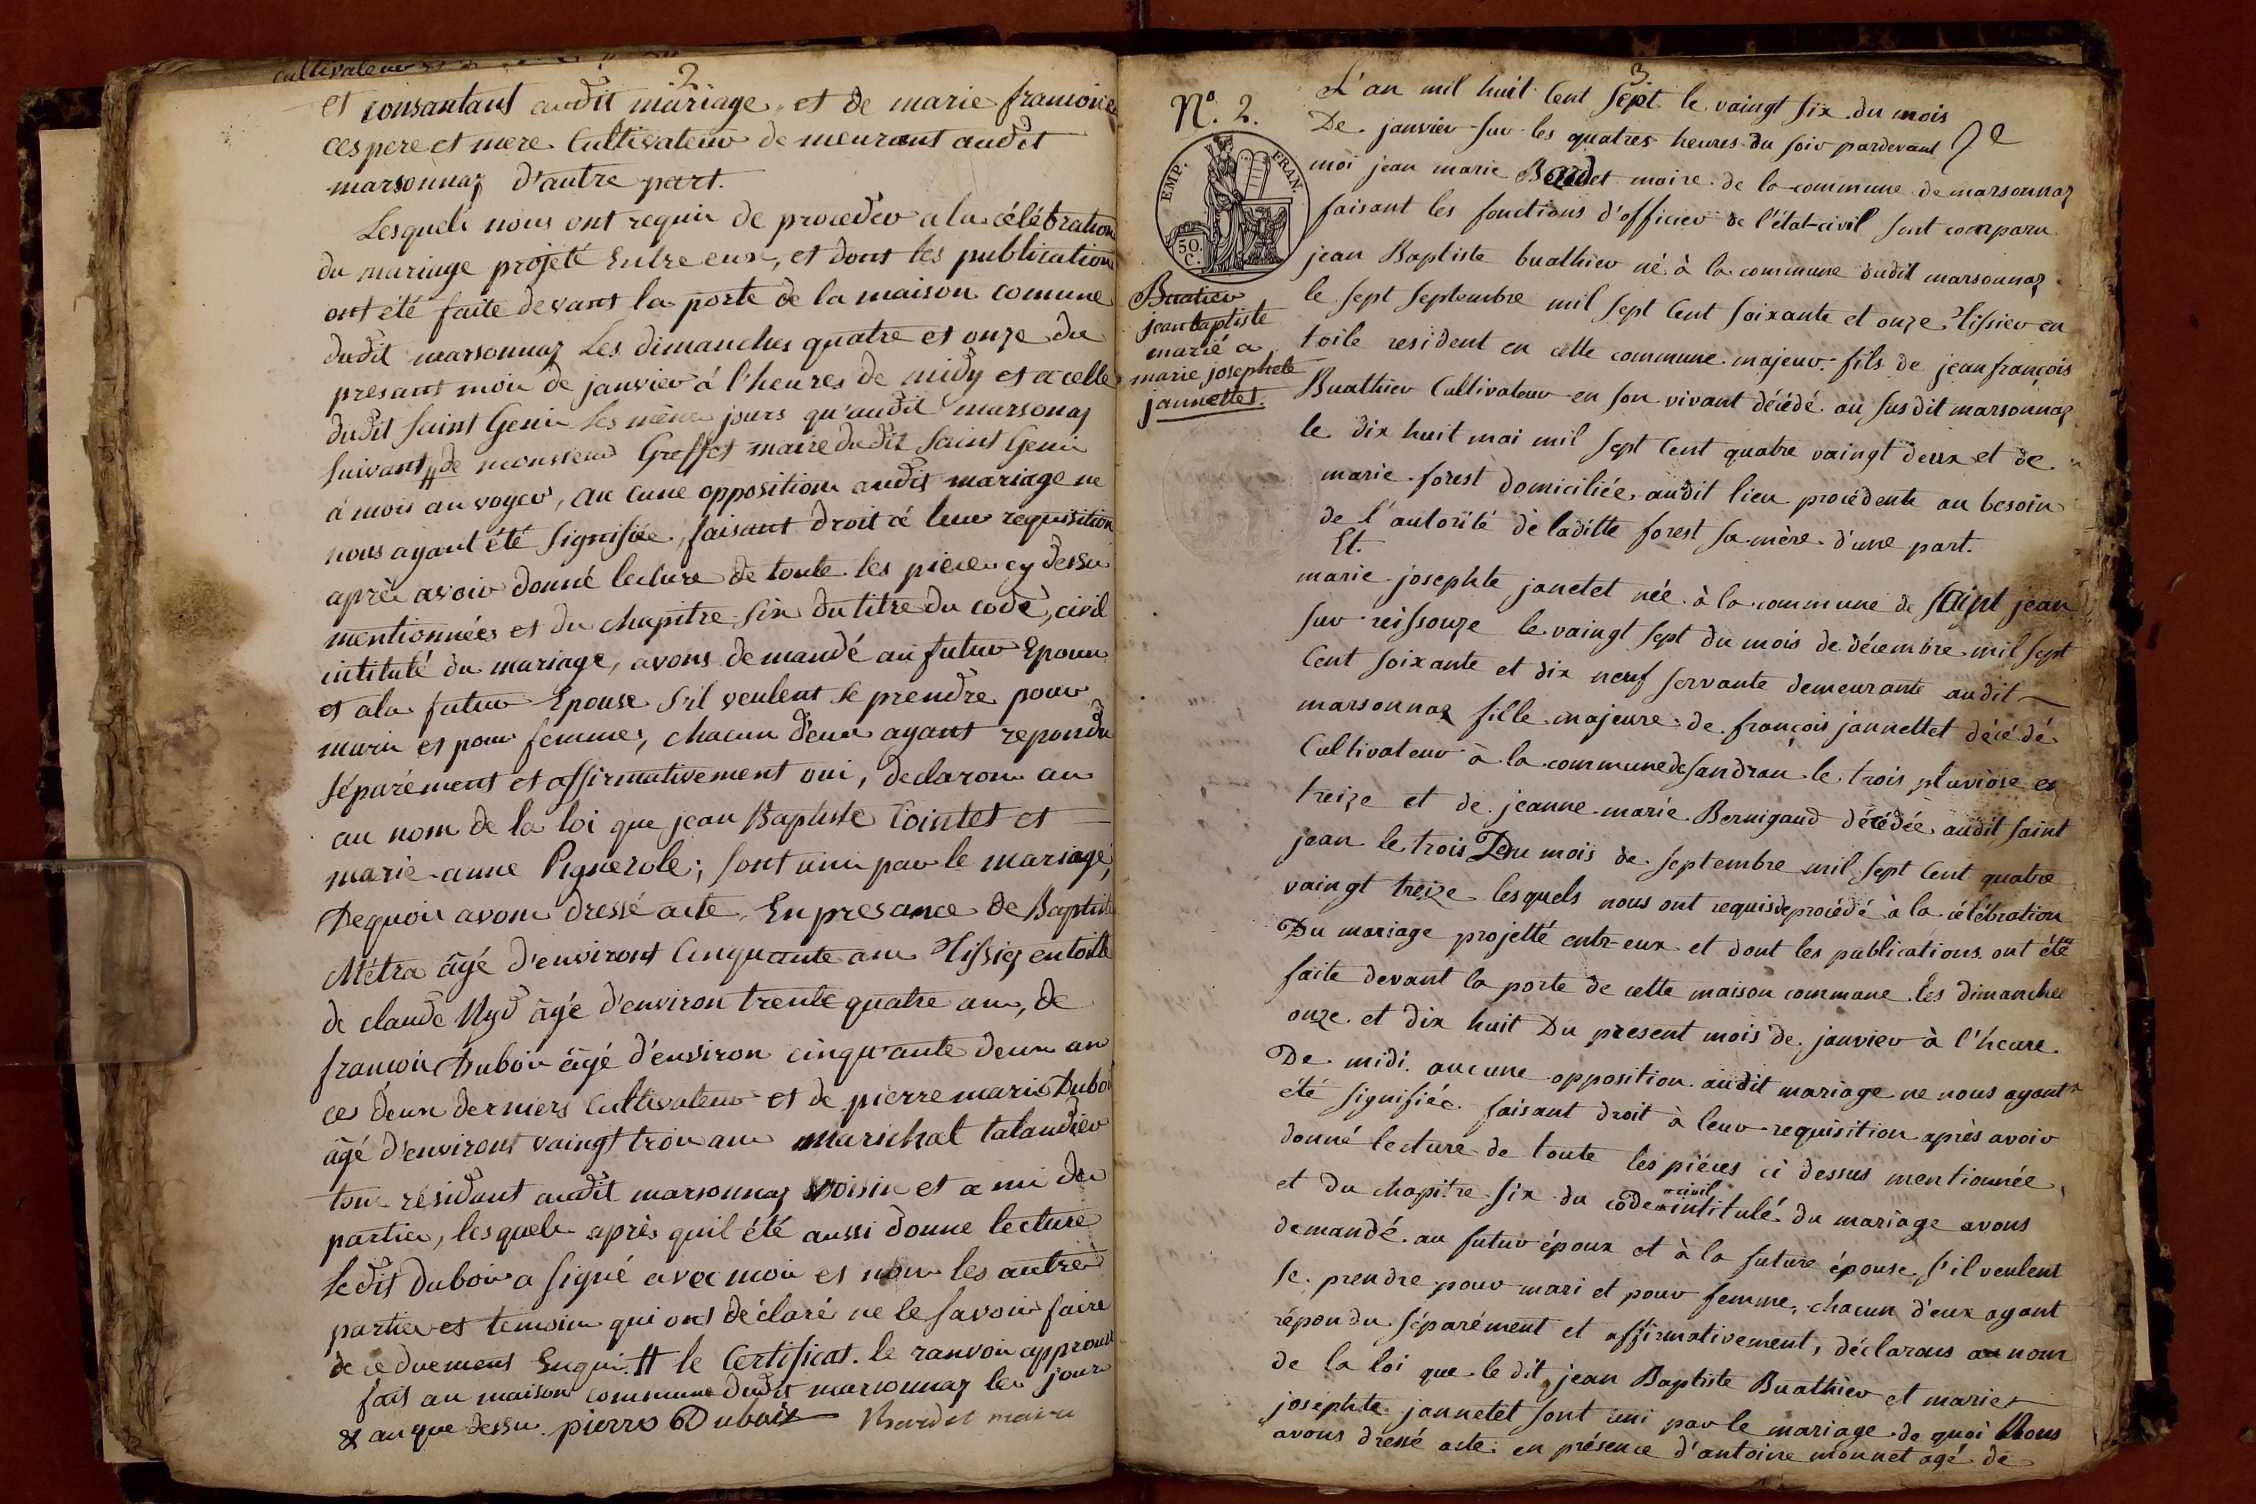 Cultivateur
2
et consantant audit mariage, et de marie francoise
ces pere et mere Cultivateur de meurant audit
marsonnaz d'autre part.
Lesquels nous ont requis de proceder a la célébration
du mariage projeté Entre eux, et dont les publication
ont été faite devant la porte de la maison comune
dudit marsonnaz Les dimanches quatre et onze du
presant mois de janvier à l'heures de midy et a celle
dudit saint Genis les même jours qu'audit marsonaz
suivant # de monsieur Greffet maire dudit saint Genis
à mois anvoyer, au cune opposition audit mariage ne
nous ayant été signifiée, faisant droit à leur requisition
après avoir donné lecture de toute les pieces cy dessu
mentionnées et du chapitre six du titre du code, civil
intitulé du mariage, avons demandé au futur Epoux
et a la futur Epouse s'il veulent se prendre pour
maris et pour femme, chacun d'eux ayant repondu
séparément et affirmativement oui, declarons au
au nom de la loi que jean Baptiste Cointet et
marie anne Pignerole; sont unis par le mariage,
Dequois avons dressé acte, En presance de Baptiste
Métra âgé d'environt Cinquante ans Tissier en toille
de claude Nyd âgé d'environ trente quatre ans, de
francois Dubois âgé d'environ cinquante deux an
ces deux derniers Cultivateur et de pierre marie Dubois
âgé d'environt vaingt trois ans marichal talandier
tous résidant audit marsonnaz voisin et a mi des
parties, lesquels après quil été aussi donne lecture
ledit Dubois a signé avec mois et non les autres
parties et temoins qui ont déclaré ne le savoir faire
de ce duement Enquis. # le Certificat. le ranvoi approuvé
fait au maison commune dudit marsonnaz les jour
& an que dessu. pierre Dubois Bardet maire
3
N.º 2.
EMP. FRAN.
50. C.
Buatier
jean baptiste
marié a
marie josephete
jannettet.
L'an mil huit Cent sept le vaingt six du mois
De janvier sur les quatres heures du soir pardevant
moi jean marie Bardet maire de la commune de marsonnaz
faisant les fonctions d'officier de l'état-civil sont comparu
jean Baptiste buathier né à la commune dudit marsonnaz
le sept septembre mil sept Cent soixante et onze Tissier en
toile resident en cette commune majeur fils de jean françois
Buathier Cultivateur en son vivant décédé au susdit marsonnaz
le dix huit mai mil sept Cent quatre vaingt deux et de
marie forest domiciliée audit lieu procédente au besoin
de l'autorité de laditte forest sa mère d'une part.
Et.
marie josephte janetet née à la commune de saint jean
sur reissouze le vaingt sept du mois de décembre mil sept
Cent soixante et dix neuf servante demeurante audit
marsonnaz fille majeure de françois jannettet décédé
Cultivateur à la commune de sandran le trois pluviose en
treize et de jeanne marie Bernigaud décédée audit saint
jean le trois Du mois de septembre mil sept Cent quatre
vaingt treize lesquels nous ont requis de procédé à la célébration
Du mariage projetté entr-eux et dont les publications ont été
faite devant la porte de cette maison commune les dimanches
onze et dix huit Du present mois de janvier à l'heure
De midi. aucune opposition audit mariage ne nous ayant
été signifiée faisant droit à leur requisition après avoir
donné lecture de toute les piéces ci dessus mentionnée
et du chapitre six du code civil intitulé du mariage avons
demandé au futur époux et à la future épouse s'il veulent
se prendre pour mari et pour femme, chacun d'eux ayant
répondu séparément et affirmativement, déclarons au nom
de la loi que le dit jean Baptiste Buathier et marie
josephte jannetet sont uni par le mariage de quoi Nous
avons dressé acte en présence d'antoine monnet agé de